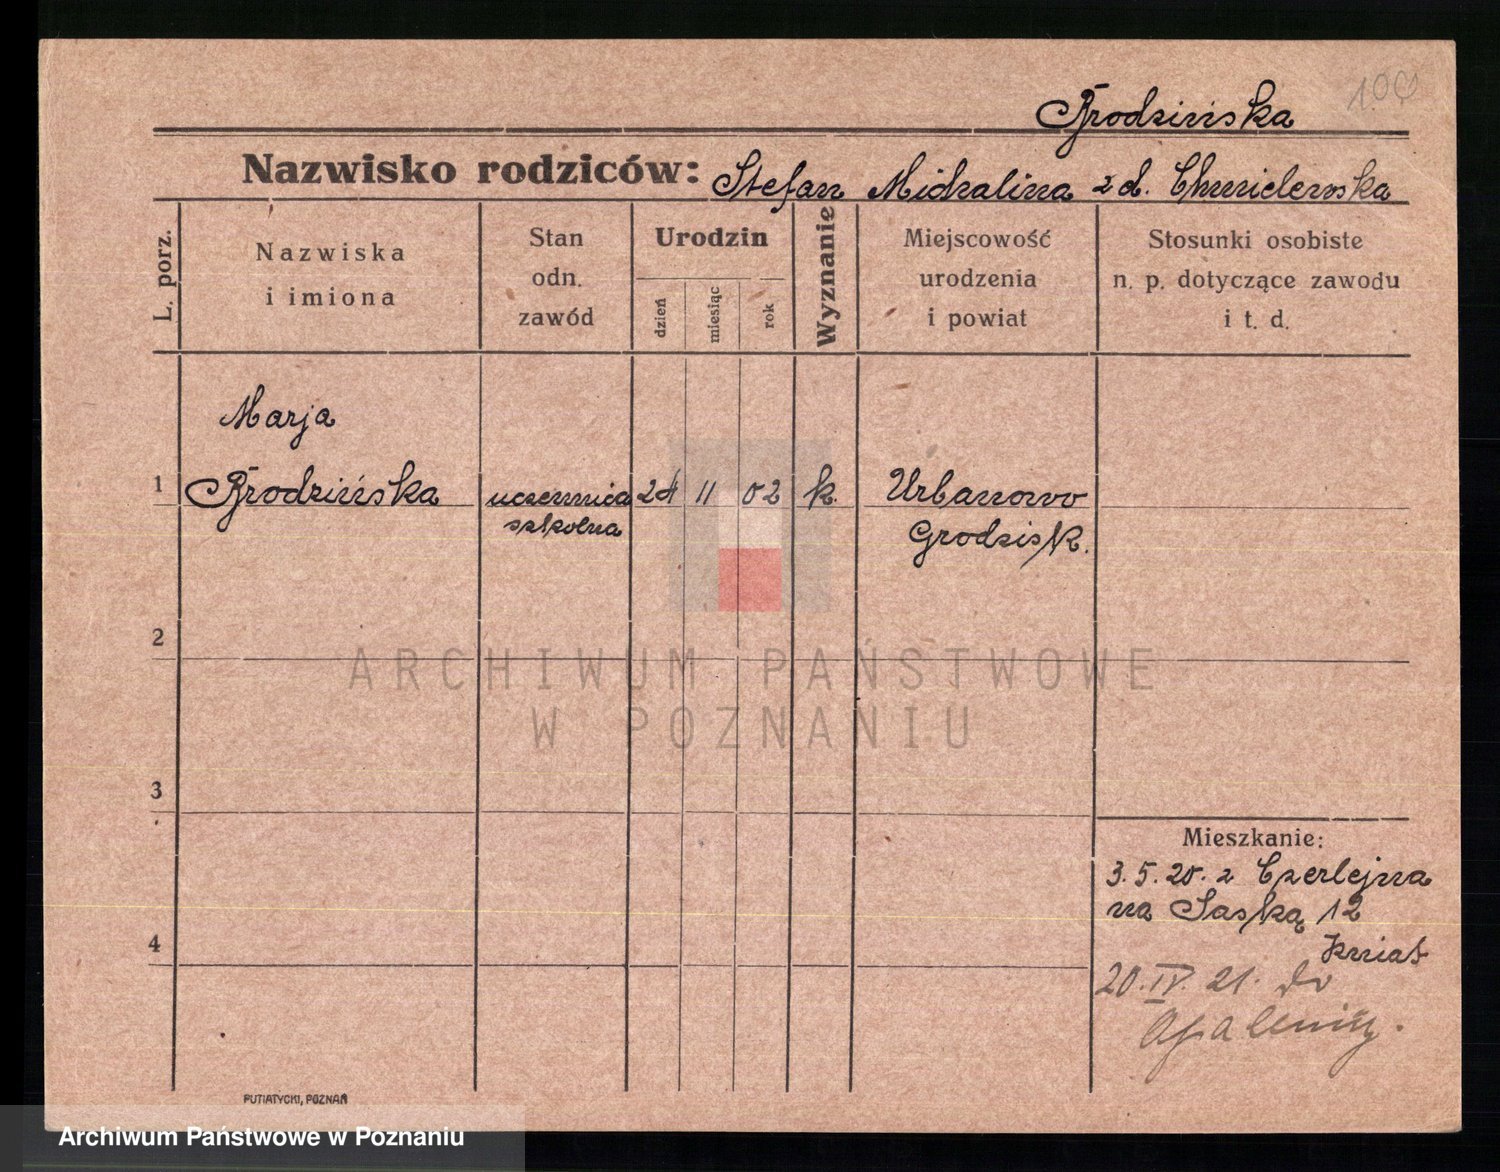 100
Brodzińska
Nazwisko rodziców: Stefan Michalina z d. Chmielewska
L. porz.
Nazwiska
i imiona
Stan
odn.
zawód
Urodzin
dzień
miesiąc
rok
Wyznanie
Miejscowość
urodzenia
i powiat
Stosunki osobiste
n. p. dotyczące zawodu
i t. d.
Marja
1 Brodzińska uczennica 24 11 02 k. Urbanowo
szkolna Grodzisk.
2
ARCHIWUM PAŃSTWOWE
W POZNANIU
3
Mieszkanie:
3. 5. 20. z Czerlejna
na Saską 12
4
Kmiat
20. IV. 21. do
Opalenicy.
PUTIATYCKI, POZNAŃ
Archiwum Państwowe w Poznaniu